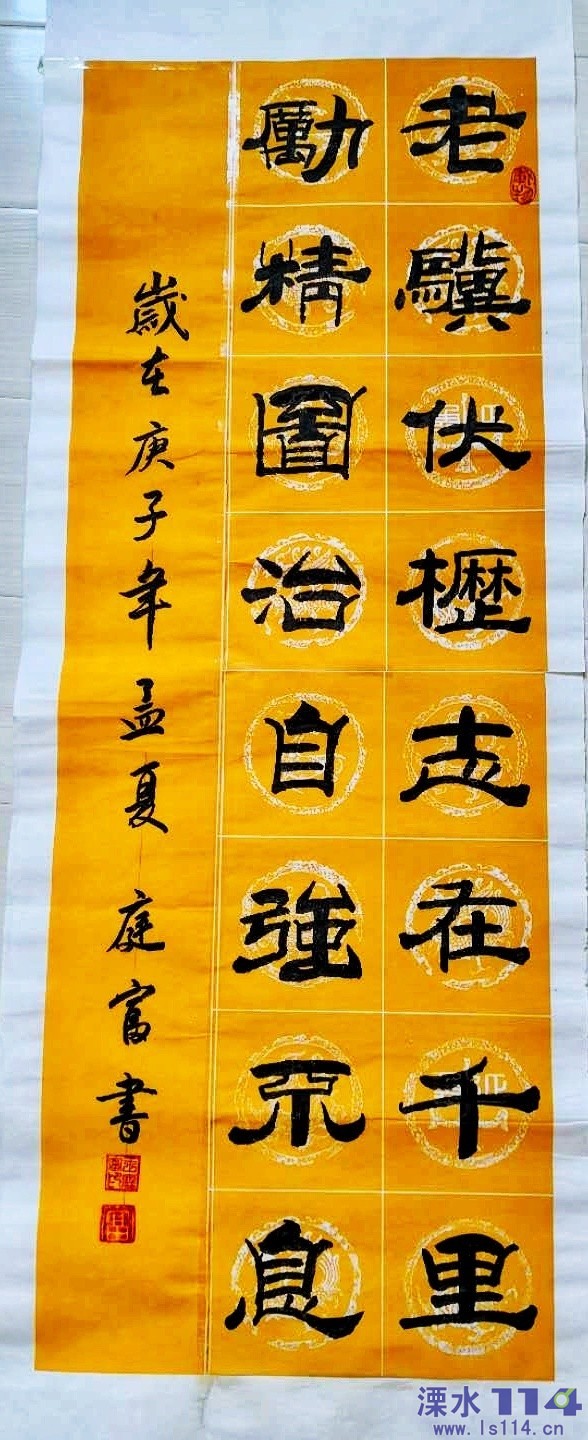 老驥伏櫪志在千里
勵精圖治自強不息
歲在庚子年孟夏 庭富書
溧水114
www.ls114.cn